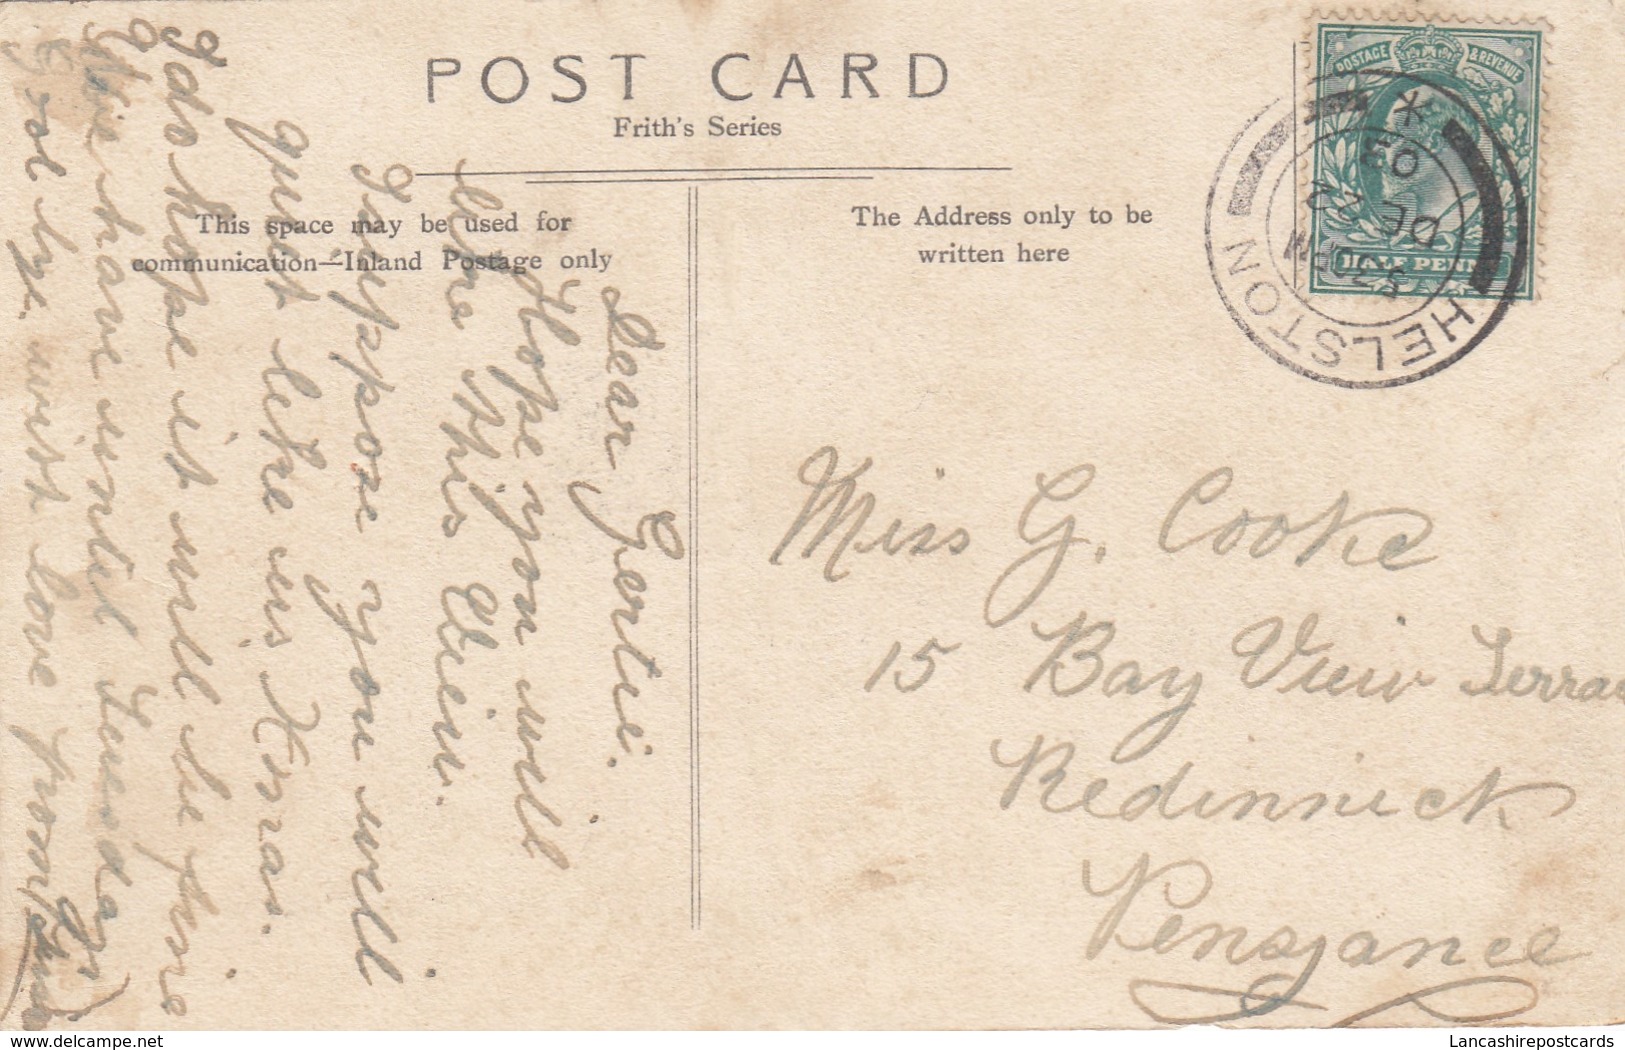 POST CARD
Frith's Series
This space may be used for
communication—Inland Postage only
The Address only to be
written here
POSTAGE & REVENUE
HALF PENNY
HELSTON
5 30 PM
DE 22
03
Dear Gertie.
Hope you will
like this View.
I suppose you will
quit like us Xmas.
I do hope it will be fine
We have until Tuesday
Good bye with love from
Miss G. Cooke
15 Bay View Terrac
Redinnick
Penzance
Lancashirepostcards
delcampe.net